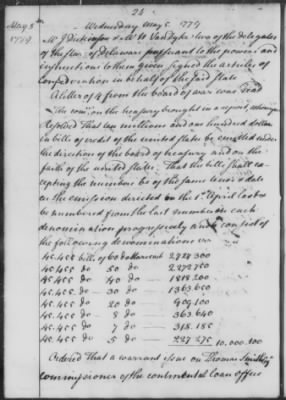 24
May 5
1779
Wednesday May 5. 1779
Mr J Dickinson & Mr N Van Dyke two of the delegates
of the state of Delaware pursuant to the powers and
instructions to them given signed the articles of
Confederation in behalf of the said state
A letter of 4 from the board of war was read
The comee. on the treasury brought in a report, whereupon
Resolved That ten millions and one hundred dollars
in bills of credit of the united states be emitted under
the direction of the board of treasury and on the
faith of the united states. That the bills shall ex-
cepting the numbers be of the same tenor & date
as the emission directed on the 1st April last & to
be numbered from the last number in each
denomination progressively and consist of
the following denominations viz
45.455 bills of 60 dollars each 2727300
45.455 do 50 do 2272750
45.455 do 40 do 1818200
45.455 do 30 do 1363650
45.455 do 20 do 909.100
45.455 do 8 do 363640
45.455 do 7 do 318.185
45.455 do 5 do 227.275 10.000.100
Ordered That a warrant issue on Thomas Smith
commissioner of the continental loan office